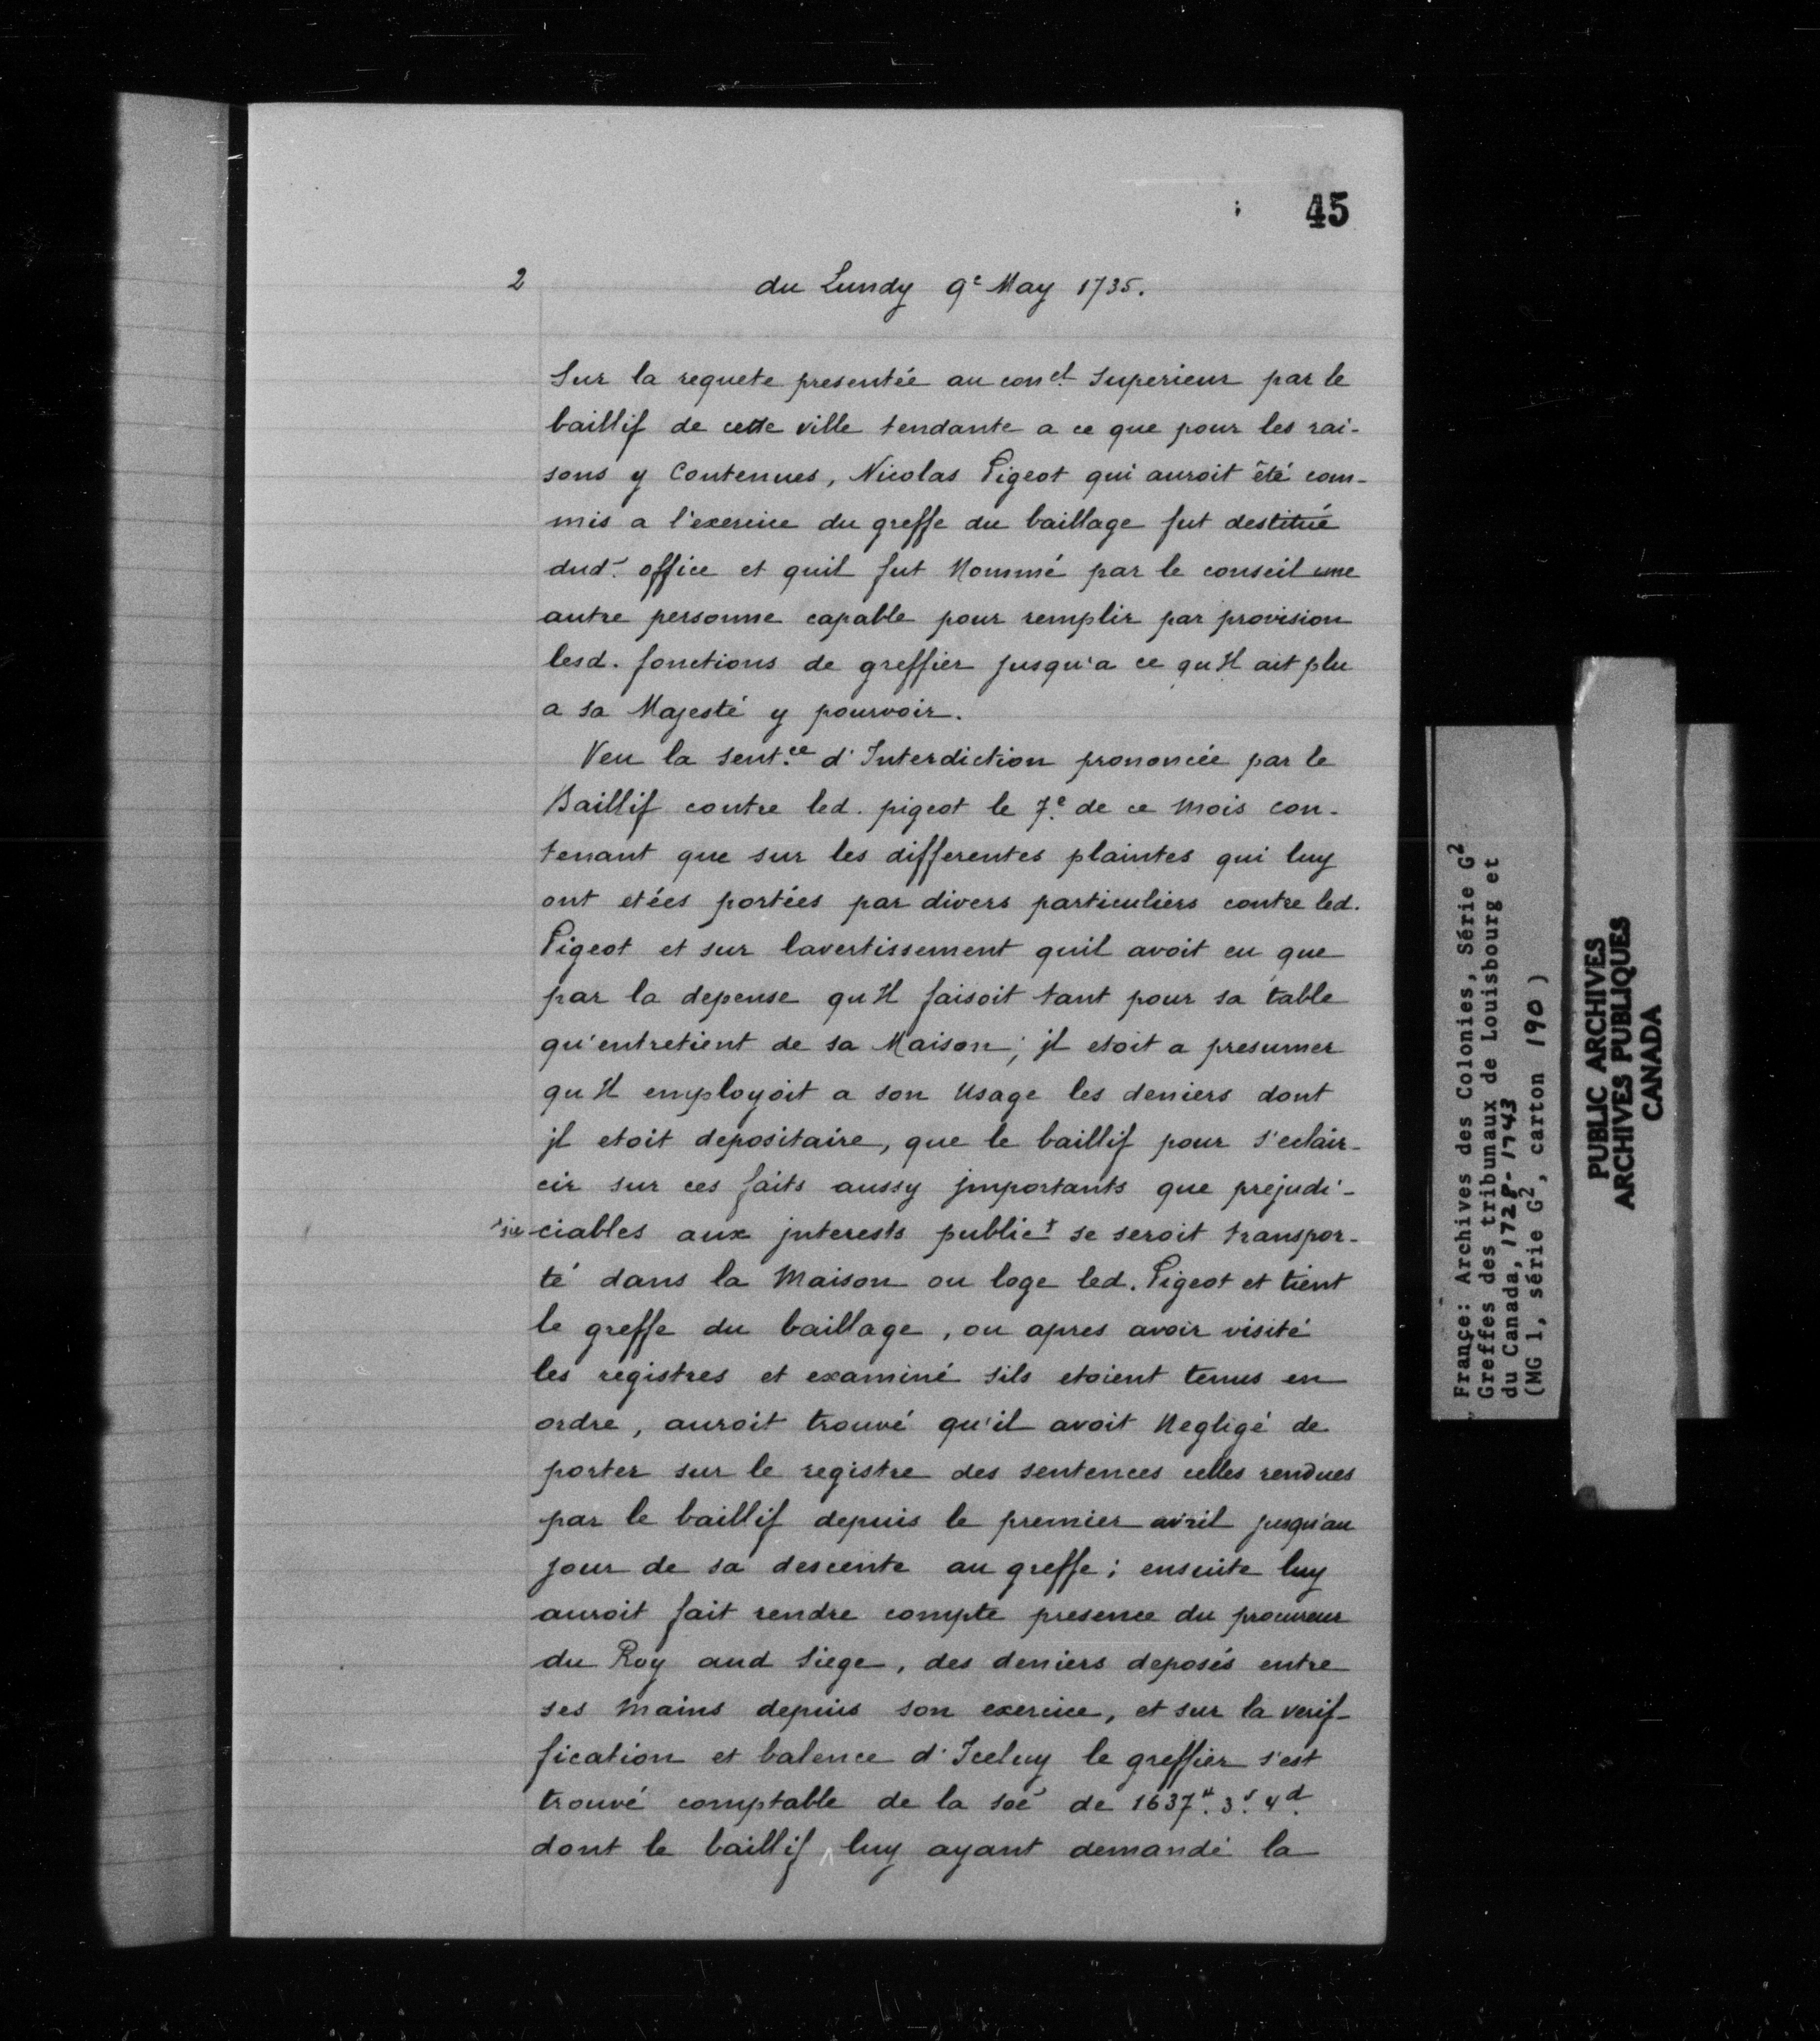 45
2 du Lundy 9e May 1735.
Sur la requete presentée au con.el Superieur par le
baillif de cette ville tendante a ce que pour les rai-
sons y Contenues, Nicolas Pigeot qui auroit êté com-
mis a l'exercice du greffe du baillage fut destitué
dud. office et quil fut Nommé par le conseil une
autre personne capable pour remplir par provision
lesd. fonctions de greffier jusqu'a ce qu'Il ait plu
a sa Majesté y pourvoir.
Veu la sent.ce d'Interdiction prononcée par le
Baillif contre led. pigeot le 7.e de ce mois con-
tenant que sur les differentes plaintes qui luy
ont etées portées par divers particuliers contre led.
Pigeot et sur lavertissement quil avoit eu que
par la depense qu'Il faisoit tant pour sa table
qu'entretient de sa Maison; jl etoit a presumer
qu'Il employoit a son Usage les deniers dont
jl etoit depositaire, que le baillif pour s'eclair-
cir sur ces faits aussy jmportants que prejudi-
sic ciables aux jnterests public+ se seroit transpor-
té dans la Maison ou loge led. Pigeot et tient
le greffe du baillage, ou apres avoir visité
les registres et examiné sils etoient tenus en
ordre, auroit trouvé qu'il avoit Negligé de
porter sur le registre des sentences celles rendues
par le baillif depuis le premier avril jusqu'au
jour de sa descente au greffe; ensuite luy
auroit fait rendre compte presence du procureur
du Roy aud Siege, des deniers deposés entre
ses mains depuis son exercice, et sur la verif-
fication et balence d'Iceluy le greffier s'est
trouvé comptable de la soe de 1637.# 3.s 4.d
dont le baillif luy ayant demandé la
France: Archives des Colonies, Série G2
Greffes des tribunaux de Louisbourg et
du Canada, 1728-1743
(MG 1, série G2, carton 190)
PUBLIC ARCHIVES
ARCHIVES PUBLIQUES
CANADA